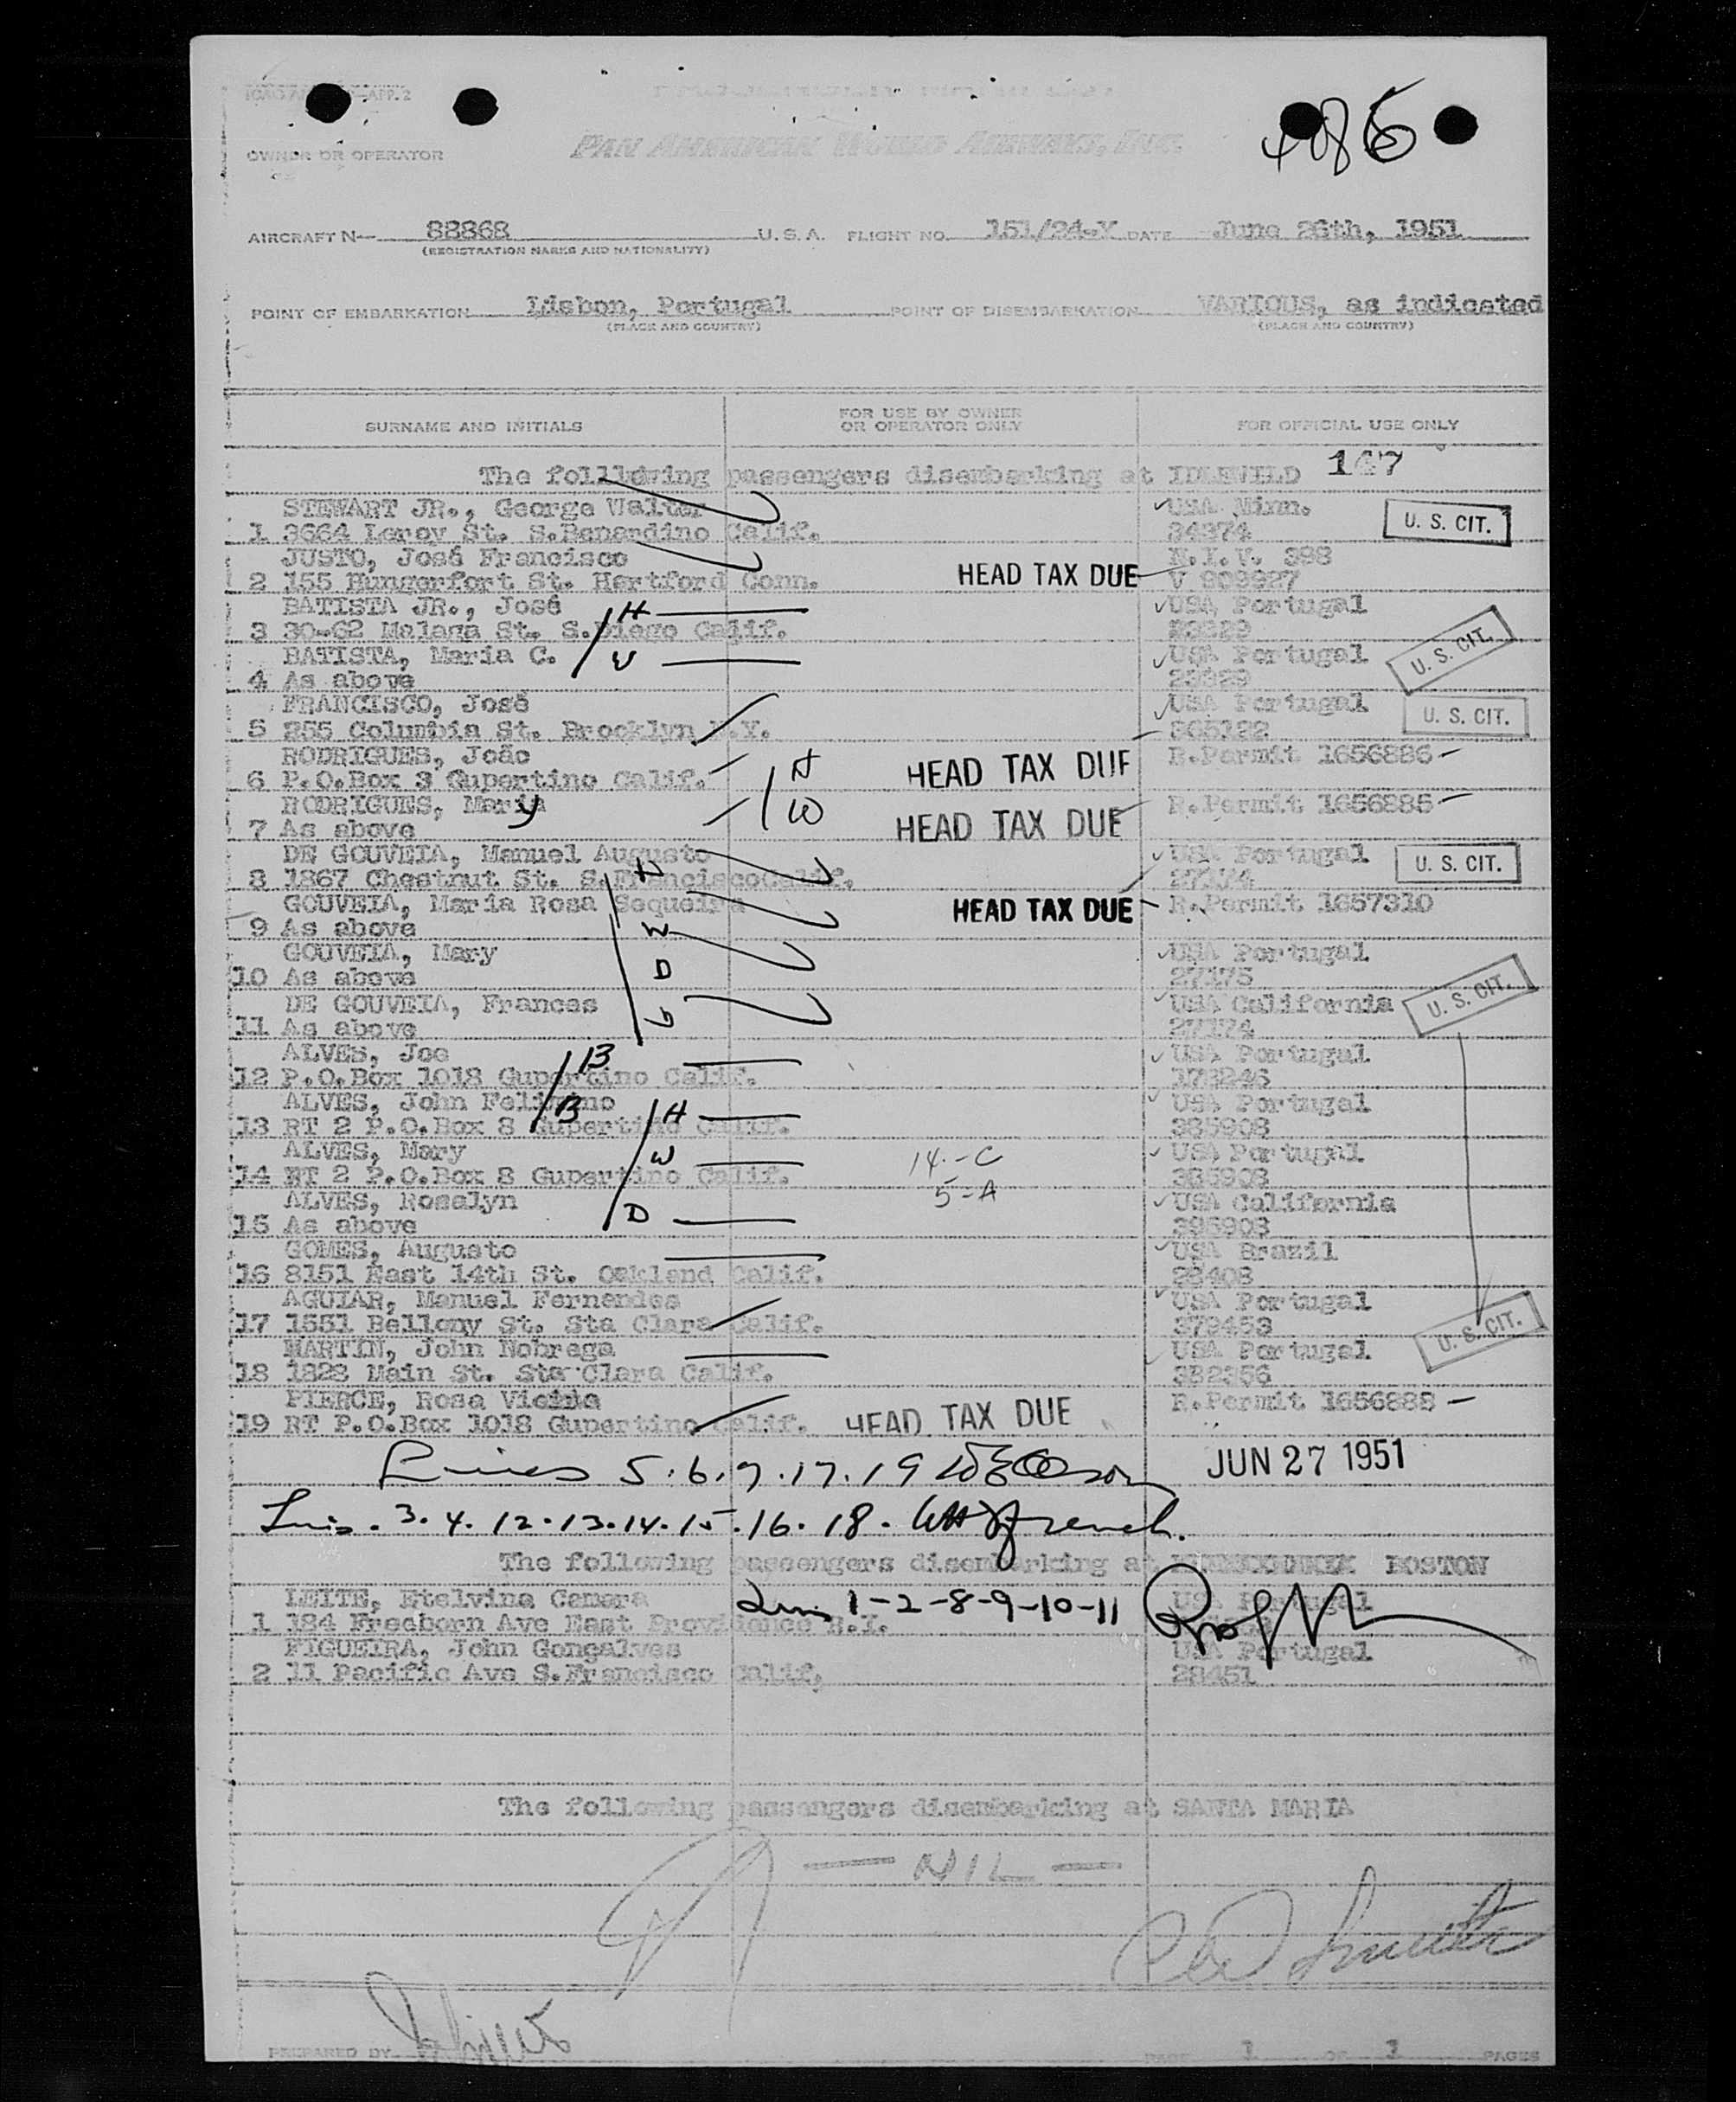 APP.2
4086
OWNER OR OPERATOR
PAN AMERICAN WORLD AIRWAYS, INC.
AIRCRAFT N— 88868 U. S. A. FLIGHT NO. 151/24-Y DATE June 26th, 1951
(REGISTRATION MARKS AND NATIONALITY)
POINT OF EMBARKATION Lisbon, Portugal POINT OF DISEMBARKATION VARIOUS, as indicated
(PLACE AND COUNTRY) (PLACE AND COUNTRY)
SURNAME AND INITIALS FOR USE BY OWNER OR OPERATOR ONLY FOR OFFICIAL USE ONLY
The following passengers disembarking at IDLEWILD 147
STEWART JR., George Walter USA Minn.
1 3664 Leroy St. S.Benardino Calif. 34374 U. S. CIT.
JUSTO, José Francisco N.I.V. 398
2 155 Hungerfort St. Hartford Conn. HEAD TAX DUE V 909927
BATISTA JR., José H USA Portugal
3 30-62 Malaga St. S.Diego Calif. 23329
BATISTA, Maria C. W USA Portugal U. S. CIT.
4 As above 23329
FRANCISCO, José USA Portugal
5 255 Columbia St. Brooklyn N.Y. 365122 U. S. CIT.
RODRIGUES, João H HEAD TAX DUE R.Permit 1656886
6 P.O.Box 3 Gupertino Calif.
RODRIGUES, Mary W HEAD TAX DUE R.Permit 1656885
7 As above
DE GOUVEIA, Manuel Augusto USA Portugal U. S. CIT.
8 1867 Chestnut St. S.Francisco Calif. H 27174
GOUVEIA, Maria Rosa Sequeira HEAD TAX DUE R.Permit 1657310
9 As above W
GOUVEIA, Mary USA Portugal
10 As above D 27175
DE GOUVEIA, Frances USA California U. S. CIT.
11 As above 27174
ALVES, Joe B USA Portugal
12 P.O.Box 1018 Gupertino Calif. 173246
ALVES, John Felipino B H USA Portugal
13 RT 2 P.O.Box 8 Gupertino Calif. 385908
ALVES, Mary W 14-C USA Portugal
14 RT 2 P.O.Box 8 Gupertino Calif. 5-A 385908
ALVES, Roselyn USA California
15 As above D 395903
GOMES, Augusto USA Brazil
16 8151 East 14th St. Oakland Calif. 28408
AGUIAR, Manuel Fernandes USA Portugal
17 1551 Bellomy St. Sta Clara Calif. 379453 U. S. CIT.
MARTIN, John Nobrega USA Portugal
18 1828 Main St. Sta Clara Calif. 382356
PIERCE, Rosa R.Permit 1656888
19 RT P.O.Box 1018 Gupertino Calif. HEAD TAX DUE
Lines 5.6.7.17.19 JUN 27 1951
Lns. 3. 4. 12. 13. 14. 15. 16. 18. French.
The following passengers disembarking at BOSTON
LEITE, Etelvina Camara Lns 1-2-8-9-10-11 USA Portugal
1 184 Freeborn Ave East Providence R.I.
FIGUEIRA, John Gonçalves USA Portugal
2 11 Pacific Ave S.Francisco Calif. 28451
The following passengers disembarking at SANTA MARIA
— NIL —
PREPARED BY PAGE 1 OF 1 PAGES